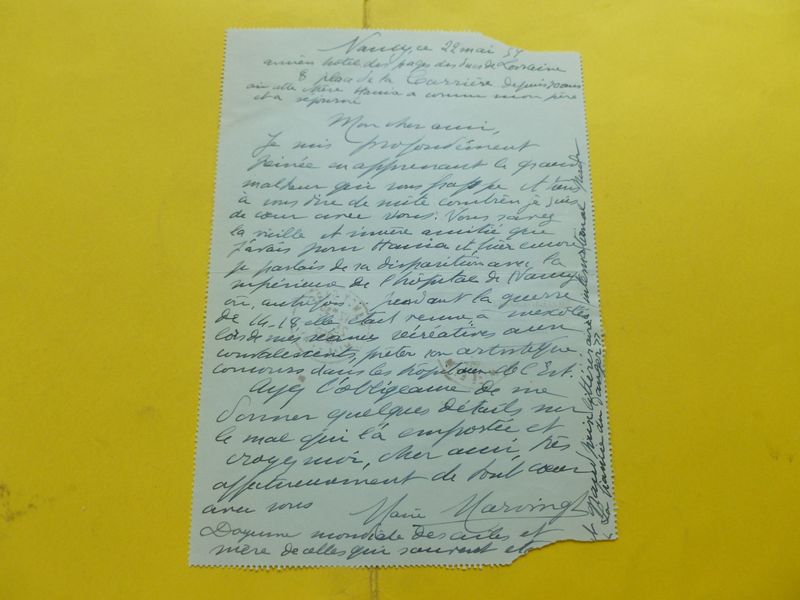 Nancy, ce 22 mai 57
ancien hotel des pages des ducs de Lorraine
8 place de la Carrière depuis 70 ans
où cette chère Hania a connu mon père
et a séjourné
Mon cher ami,
Je suis profondément
peinée en apprenant le grand
malheur qui vous frappe et tiens
à vous dire de suite combien je suis
de cœur avec vous. Vous savez
la vieille et sincère amitié que
j'avais pour Hania et hier encore
je parlais de sa disposition avec la
supérieure de l'hôpital de Nancy
où, autrefois, pendant la guerre
de 14-18, elle était venue
lors de mes séances récréatives aux
convalescents, prêter son artistique
concours dans les hopitaux de l'Est.
Ayez l'obligeance de me
donner quelques détails sur
le mal qui l'a emportée et
croyez moi, cher ami, très
affectueusement de tout cœur
avec vous
Marie Marvingt
Doyenne mondiale des ailes et
mère de celles qui sauvent et
et grand prix littéraire international
"La fiancée du danger"